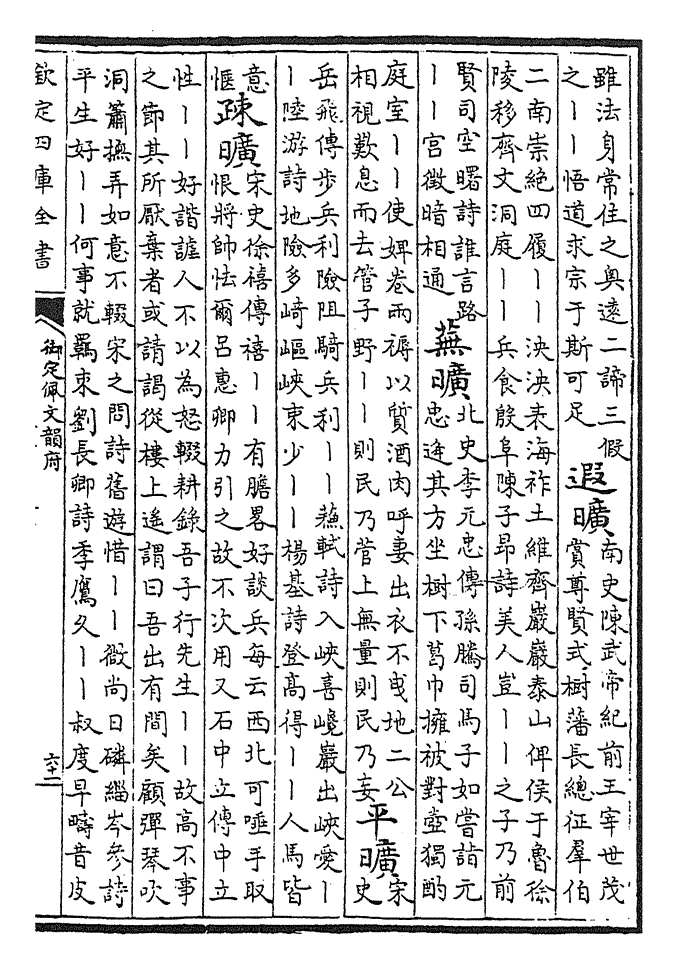 雖法身常住之奥遠二諦三假
之丨丨悟道求宗于斯可足
遐曠
南史陳武帝紀前王宰世茂
賞尊賢式樹藩長總征羣伯
二南崇絶四履丨丨泱泱表海祚土維齊巖巖泰山俾侯于魯徐
陵移齊文洞庭丨丨兵食殷阜陳子昂詩美人豈丨丨之子乃前
賢司空曙詩誰言路
丨丨宫徵暗相通
蕪曠
北史李元忠傳孫騰司馬子如嘗詣元
忠逢其方坐樹下葛巾擁被對壺獨酌
庭室丨丨使婢卷兩褥以質酒肉呼妻出衣不曵地二公
相視歎息而去管子野丨丨則民乃菅上無量則民乃妄
平曠
宋
史
岳飛傳步兵利險阻騎兵利丨丨蘇軾詩入峽喜巉巖出峽愛丨
丨陸游詩地險多崎嶇峽束少丨丨楊基詩登高得丨丨人馬皆
意
愜
疎曠
宋史徐禧傳禧丨丨有膽畧好談兵每云西北可唾手取
恨將帥怯爾吕惠卿力引之故不次用又石中立傳中立
性丨丨好諧謔人不以為怒輟耕錄吾子行先生丨丨故高不事
之節其所厭棄者或請謁從樓上遙謂曰吾出有間矣顧彈琴吹
洞簫撫弄如意不輟宋之問詩舊遊惜丨丨微尚日磷緇岑參詩
平生好丨丨何事就羈束劉長卿詩季鷹久丨丨叔度早疇昔皮
欽定四庫全書
御定佩文韻府